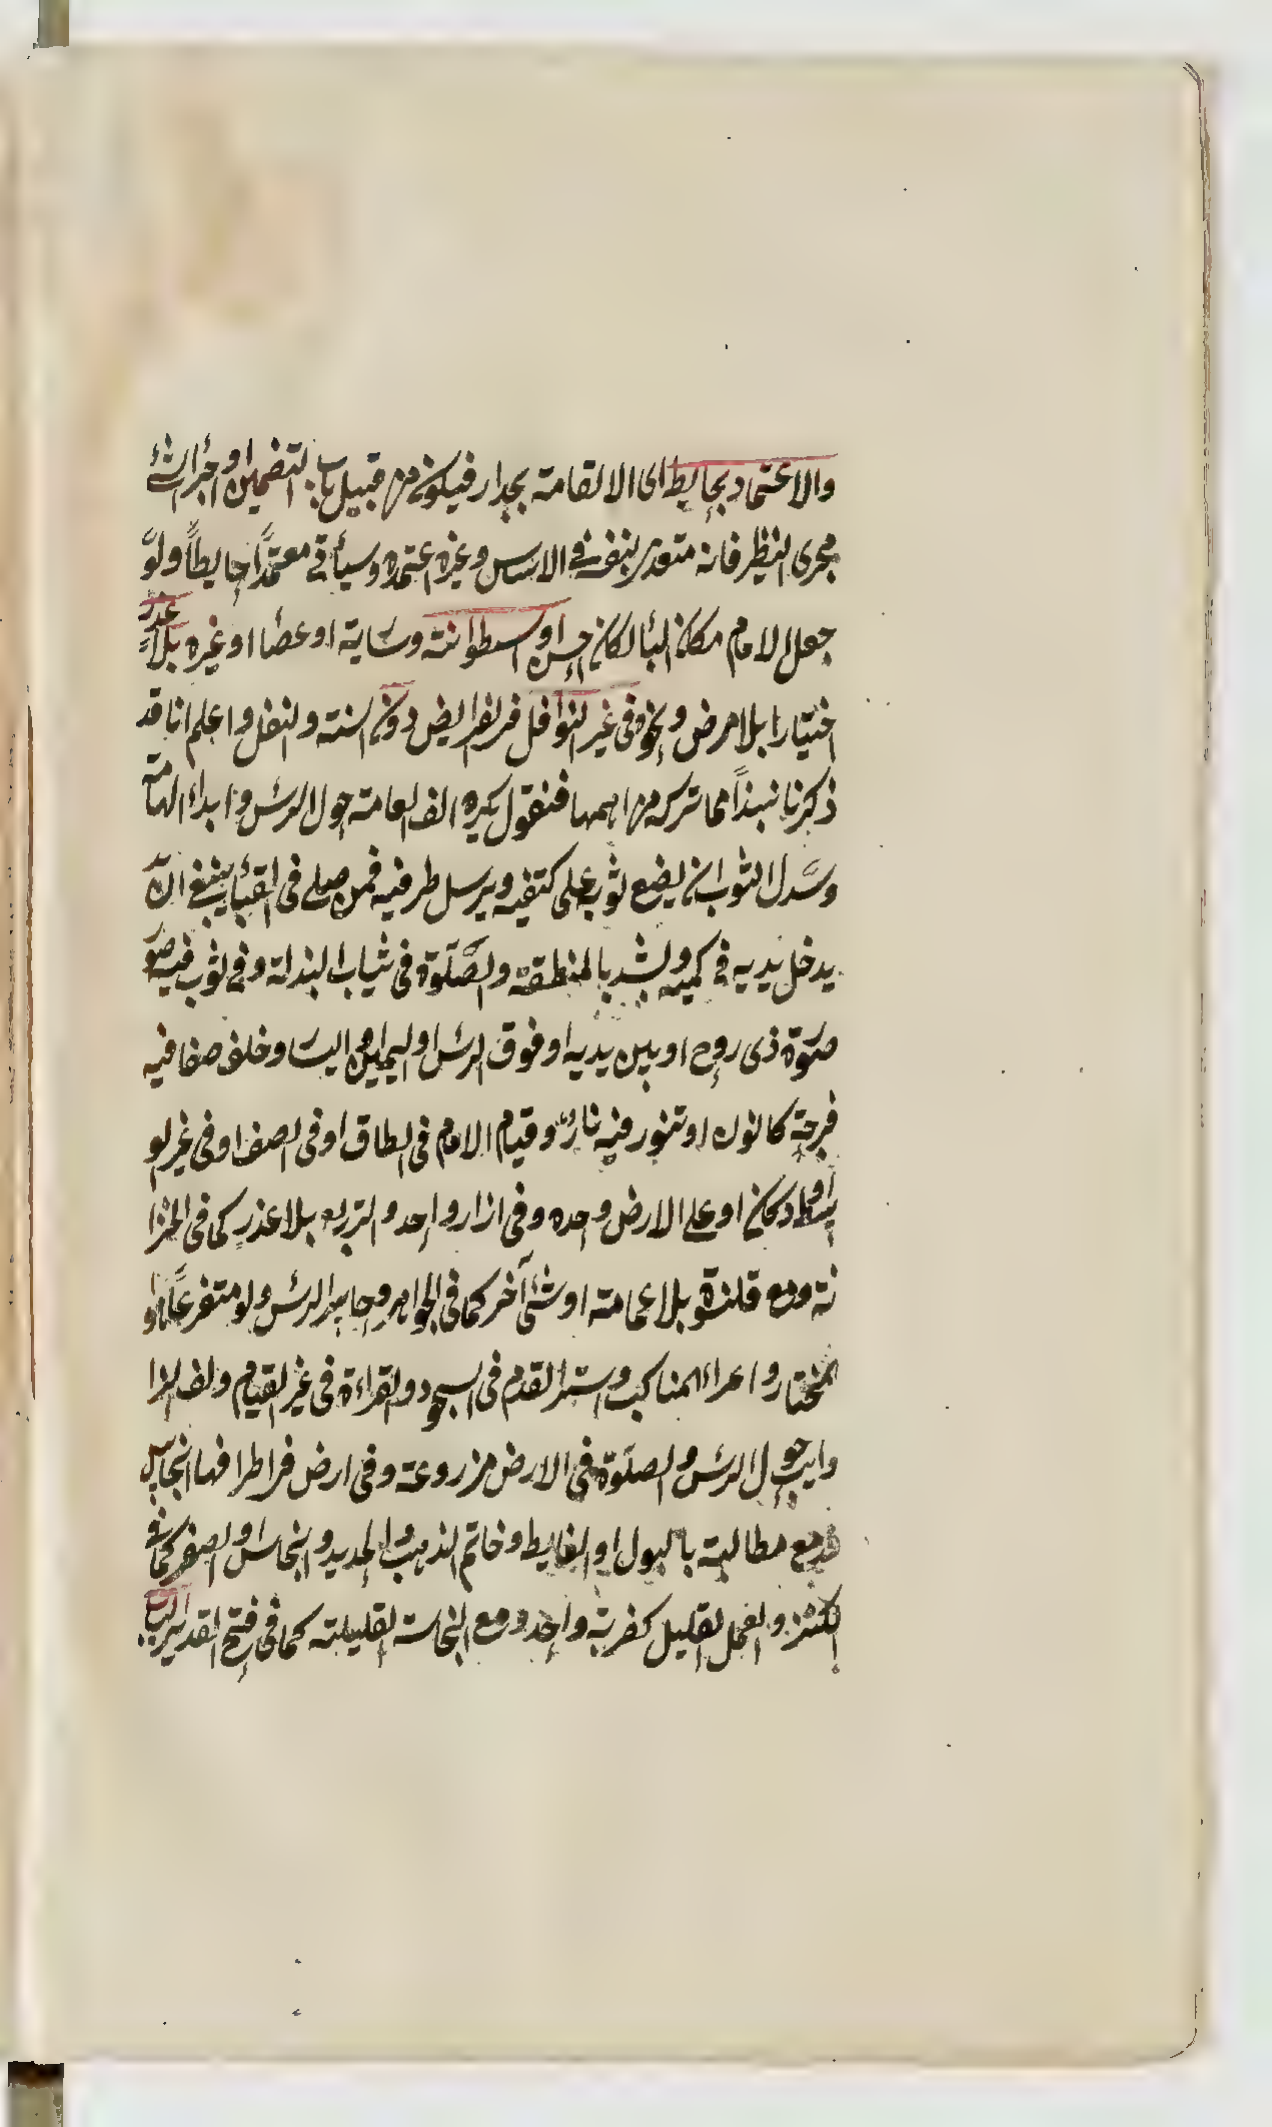 والاعتماد بحايط اى الالقامة بجدار فيكون من قبيل باب التضمين او اجراء الشئ
مجرى النظير فانه متعد بنفسه فى الاساس وغيره اعتمده وسيأتى معتمدًا حايطاً ولو
جعل الامام مكان البأ لكان احسن او اسطوانته وساية او عصًا او غيره بلا عذر
اختيارا بلا مرض ونحوه فى غير النوافل من الفرايض دون السنة والنفل واعلم انا قد
ذكرنا نبذاً مما تركه من اهمها فنقول يكره الف العامة حول الرئس وابداء الهامة
وسدل الثوب ان يضع ثوب على كتفيه ويرسل طرفيه فمن صلى فى القبأ ينبغى ان
يدخل يديه فى كميه ويشد بالمنطقة والصلوة فى ثياب البذلة وفى ثوب فيه صو
صورة ذى روح او بين يديه او فوق الرئس او اليمين او اليسا وخلف صفا فيه
فرجة كانون او تنور فيه نار وقيام الامام فى الطاق او فى الصف او فى غير لو
بساط او دكان او على الارض وحده وفى ازار واحد والتربع بلا عذر كما فى الخزا
نة ومع قلنسوة بلا عمامة او شئ آخر كما فى الجواهر وحاسر الرئس ولو متضرعاً
المختار واعراء المناكب وستر القدم فى السجود والقراءة فى غير القيام ولف الازا
وايب حول الرئس والصلوة فى الارض مزروعة وفى ارض من اطرافها انجاس
ومع مطالبة بالبول او الغايط وخاتم الذهب والحديد والنحاس والصفر كما فى
الكنز والعمل القليل كضربة واحد ومع النجاسة القليلة كما فى فتح القدير